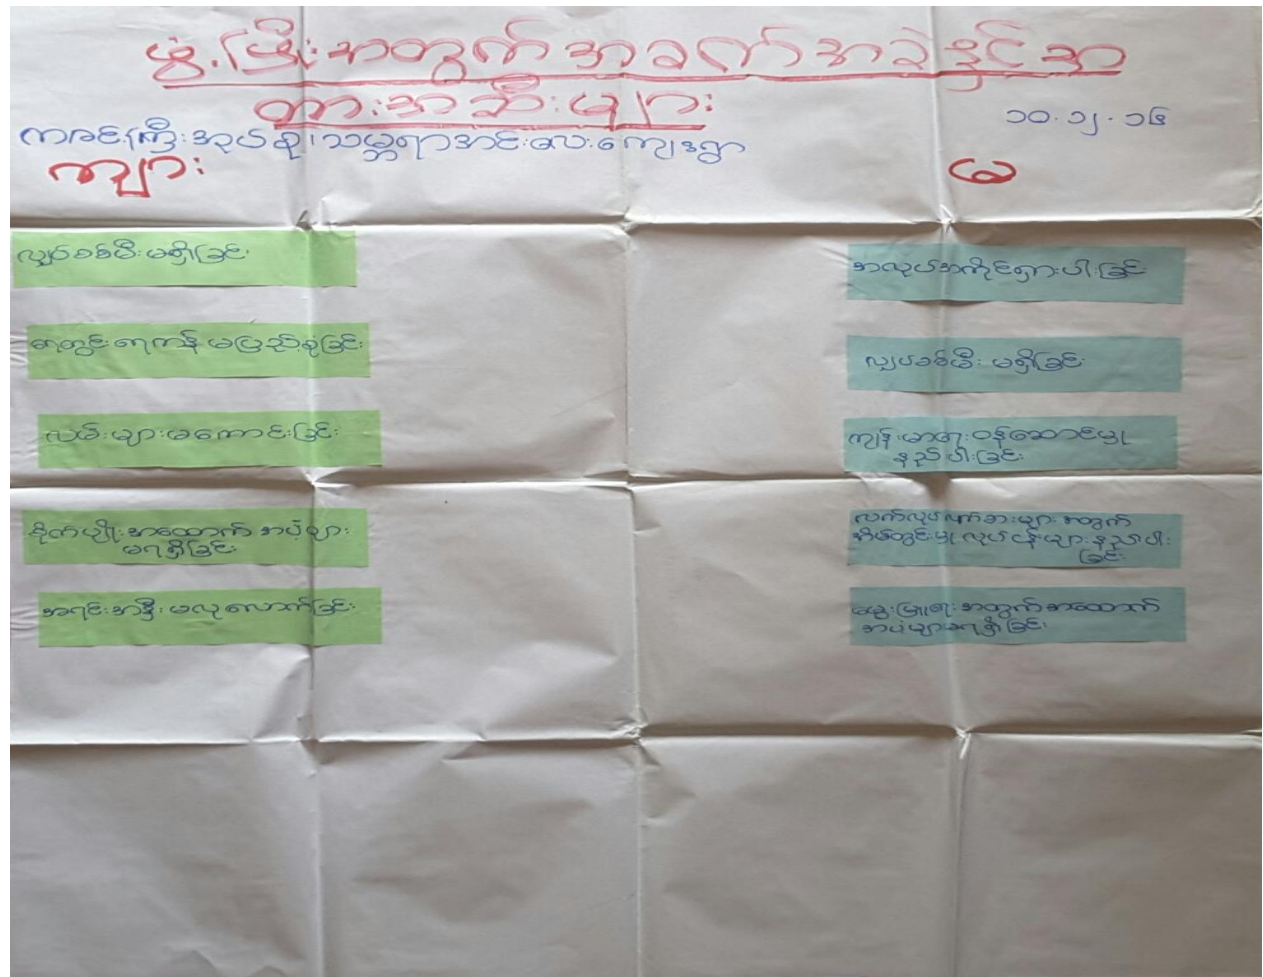 ဖွံ့ဖြိုးအတွက်အခက်အခဲနှင့်အ
တားအဆီးများ
၁၀.၁၂.၁၆
ကဇင်းကြီးအုပ်စု၊သမ္ဘရာအင်းလေးကျေးရွာ
ကျား
မ
လျှပ်စစ်မီးမရှိခြင်း
ရေတွင်းရေကန်မပြည့်စုံခြင်း
လမ်းများမကောင်းခြင်း
စိုက်ပျိုးအထောက်အပံ့များ
မရရှိခြင်း
အရင်းအနှီးမလုံလောက်ခြင်း
အလုပ်အကိုင်ရှားပါးခြင်း
လျှပ်စစ်မီး မရှိခြင်း
ကျန်းမာရေးဝန်ဆောင်မှု
နည်းပါးခြင်း
လက်လုပ်လက်စားများအတွက်
အိမ်တွင်းမှုလုပ်ငန်းများနည်းပါး
ခြင်း
မွေးမြူရေးအတွက်အထောက်
အပံ့များမရရှိခြင်း